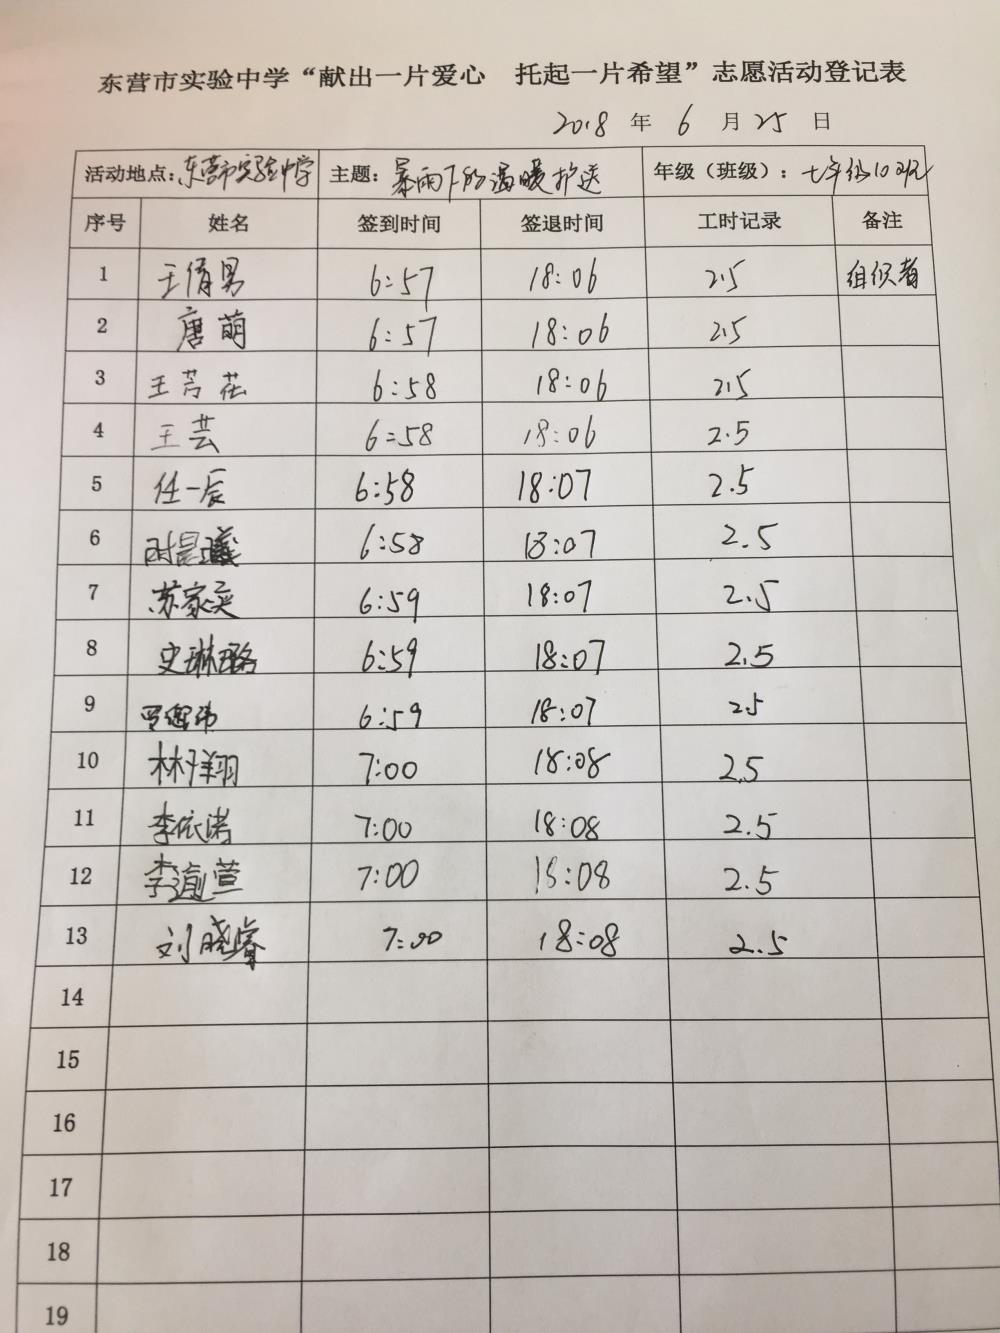 东营市实验中学“献出一片爱心 托起一片希望”志愿活动登记表
2018 年 6 月 25 日
活动地点：东营市实验中学 主题：暴雨下的温暖护送 年级（班级）：七年级10班
序号 姓名 签到时间 签退时间 工时记录 备注
1 王倩男 6:57 18:06 2.5 组织者
2 唐萌 6:57 18:06 2.5
3 王芳花 6:58 18:06 2.5
4 王芸 6:58 18:06 2.5
5 任一辰 6:58 18:07 2.5
6 6:58 18:07 2.5
7 苏家奕 6:59 18:07 2.5
8 史琳璐 6:59 18:07 2.5
9 6:59 18:07 2.5
10 林祥翔 7:00 18:08 2.5
11 李依诺 7:00 18:08 2.5
12 李谕萱 7:00 18:08 2.5
13 刘晓睿 7:00 18:08 2.5
14
15
16
17
18
19